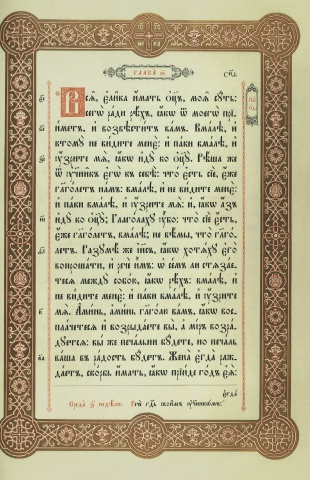 ГЛАВА
Всѧ̑, є҆ли̑ка и҆́мать ѻ҆ц҃ъ, моѧ̑ сꙋ́ть:
сегѡ̀ ра́ди рѣ́хъ, ꙗ҆́кѡ ѿ моегѡ̀ прїи́-
метъ, и҆ возвѣсти́тъ ва́мъ. Вма́лѣ, и҆
ктомꙋ̀ не ви́дите менѐ: и҆ па́ки вма́лѣ, и҆
ᲂу҆́зрите мѧ̀, ꙗ҆́кѡ и҆дꙋ̀ ко ѻ҆ц҃ꙋ̀. Рѣ́ша же
ѿ ᲂу҆чн҃къ є҆гѡ̀ къ себѣ̀: что̀ є҆́сть сїѐ,
є҆́же глаго́летъ на́мъ: вма́лѣ, и҆ не ви́дите менѐ:
и҆ па́ки вма́лѣ, и҆ ᲂу҆́зрите мѧ̀: и҆, ꙗ҆́кѡ а҆́зъ
и҆дꙋ̀ ко ѻ҆ц҃ꙋ̀; Глаго́лахꙋ ᲂу҆̀бо: что̀ сїѐ є҆́сть,
є҆́же глаго́летъ, вма́лѣ; не вѣ́мы, что̀ глаго́-
летъ. Разꙋмѣ́ же і҆и҃съ, ꙗ҆́кѡ хотѧ́хꙋ є҆го̀
вопроша́ти, и҆ речѐ и҆̀мъ: ѡ҆ се́мъ ли стѧза́е-
тесѧ междꙋ̀ собо́ю, ꙗ҆́кѡ рѣ́хъ: вма́лѣ, и҆
не ви́дите менѐ: и҆ па́ки вма́лѣ, и҆ ᲂу҆́зрите
мѧ̀; А҆ми́нь, а҆ми́нь глаго́лю ва́мъ, ꙗ҆́кѡ вос-
пла́четесѧ и҆ возрыда́ете вы̀, а҆ мі́ръ возра́-
дꙋетсѧ: вы́ же печа́льни бꙋ́дете, но печа́ль
ва́ша въ ра́дость бꙋ́детъ. Жена̀ є҆гда̀ раж-
да́етъ, ско́рбь и҆́мать, ꙗ҆́кѡ прїи́де го́дъ є҆ѧ̀:
є҆гда́
Среда̀ з҃ недѣ́ли: Речѐ гдⷭ҇ь свои̑мъ ᲂу҆чн҃кѡ́мъ: